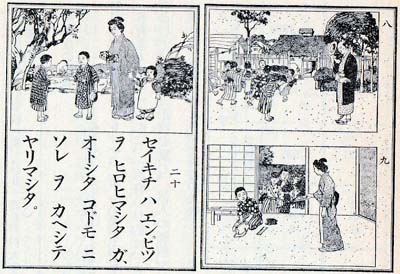 八
九
二十
セイキチ ハ エンピツ
ヲ ヒロヒマシタ ガ、
オトシタ コドモ ニ
ソレ ヲ カヘシテ
ヤリマシタ。